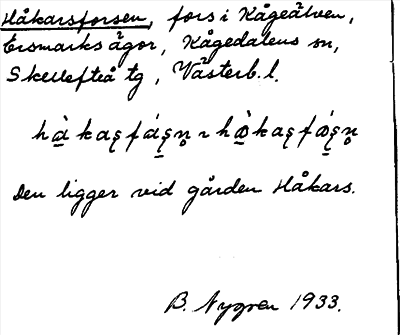 Håkarsforsen, fors i Kågeälven,
Ersmarks ägor, Kågedalens sn,
Skellefteå tg, Västerb. l.
Den ligger vid gården Håkars.
B. Nygren 1933.